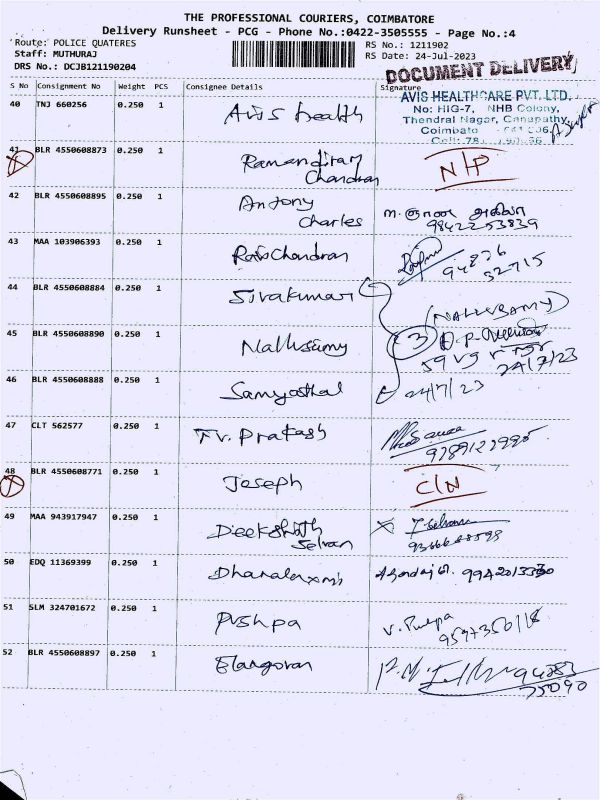 THE PROFESSIONAL COURIERS, COIMBATORE
Delivery Runsheet - PCG - Phone No.:0422-3505555 - Page No.:4
Route: POLICE QUATERES
RS No.: 1211902
Staff: MUTHURAJ
RS Date: 24-Jul-2023
DRS No.: DCJB121190204
DOCUMENT DELIVERY
S No Consignment No Weight PCS Consignee Details Signature
AVIS HEALTHCARE PVT. LTD.
No: HIG-7, NHB Colony,
Thendral Nagar, Ganapathy,
40 TNJ 660256 0.250 1 Avis health
41 BLR 4550608873 0.250 1 Ramandiran Chandran N/P
42 BLR 4550608895 0.250 1 Antony Charles 9842253839
43 MAA 103906393 0.250 1 Ravichandran 94826 32715
44 BLR 4550608884 0.250 1 Sivakumar (NALLUSAMY)
45 BLR 4550608890 0.250 1 Nallusamy 3 24/7/23
46 BLR 4550608888 0.250 1 24/7/23
47 CLT 562577 0.250 1 Tv. Prakash 9789127995
48 BLR 4550608771 0.250 1 Joseph C/N
49 MAA 943917947 0.250 1 Deekshith Selvan
50 EDQ 11369399 0.250 1 Dhanalaxmi
51 SLM 324701672 0.250 1 Pushpa V. Puspa
52 BLR 4550608897 0.250 1 Elangovan 75090